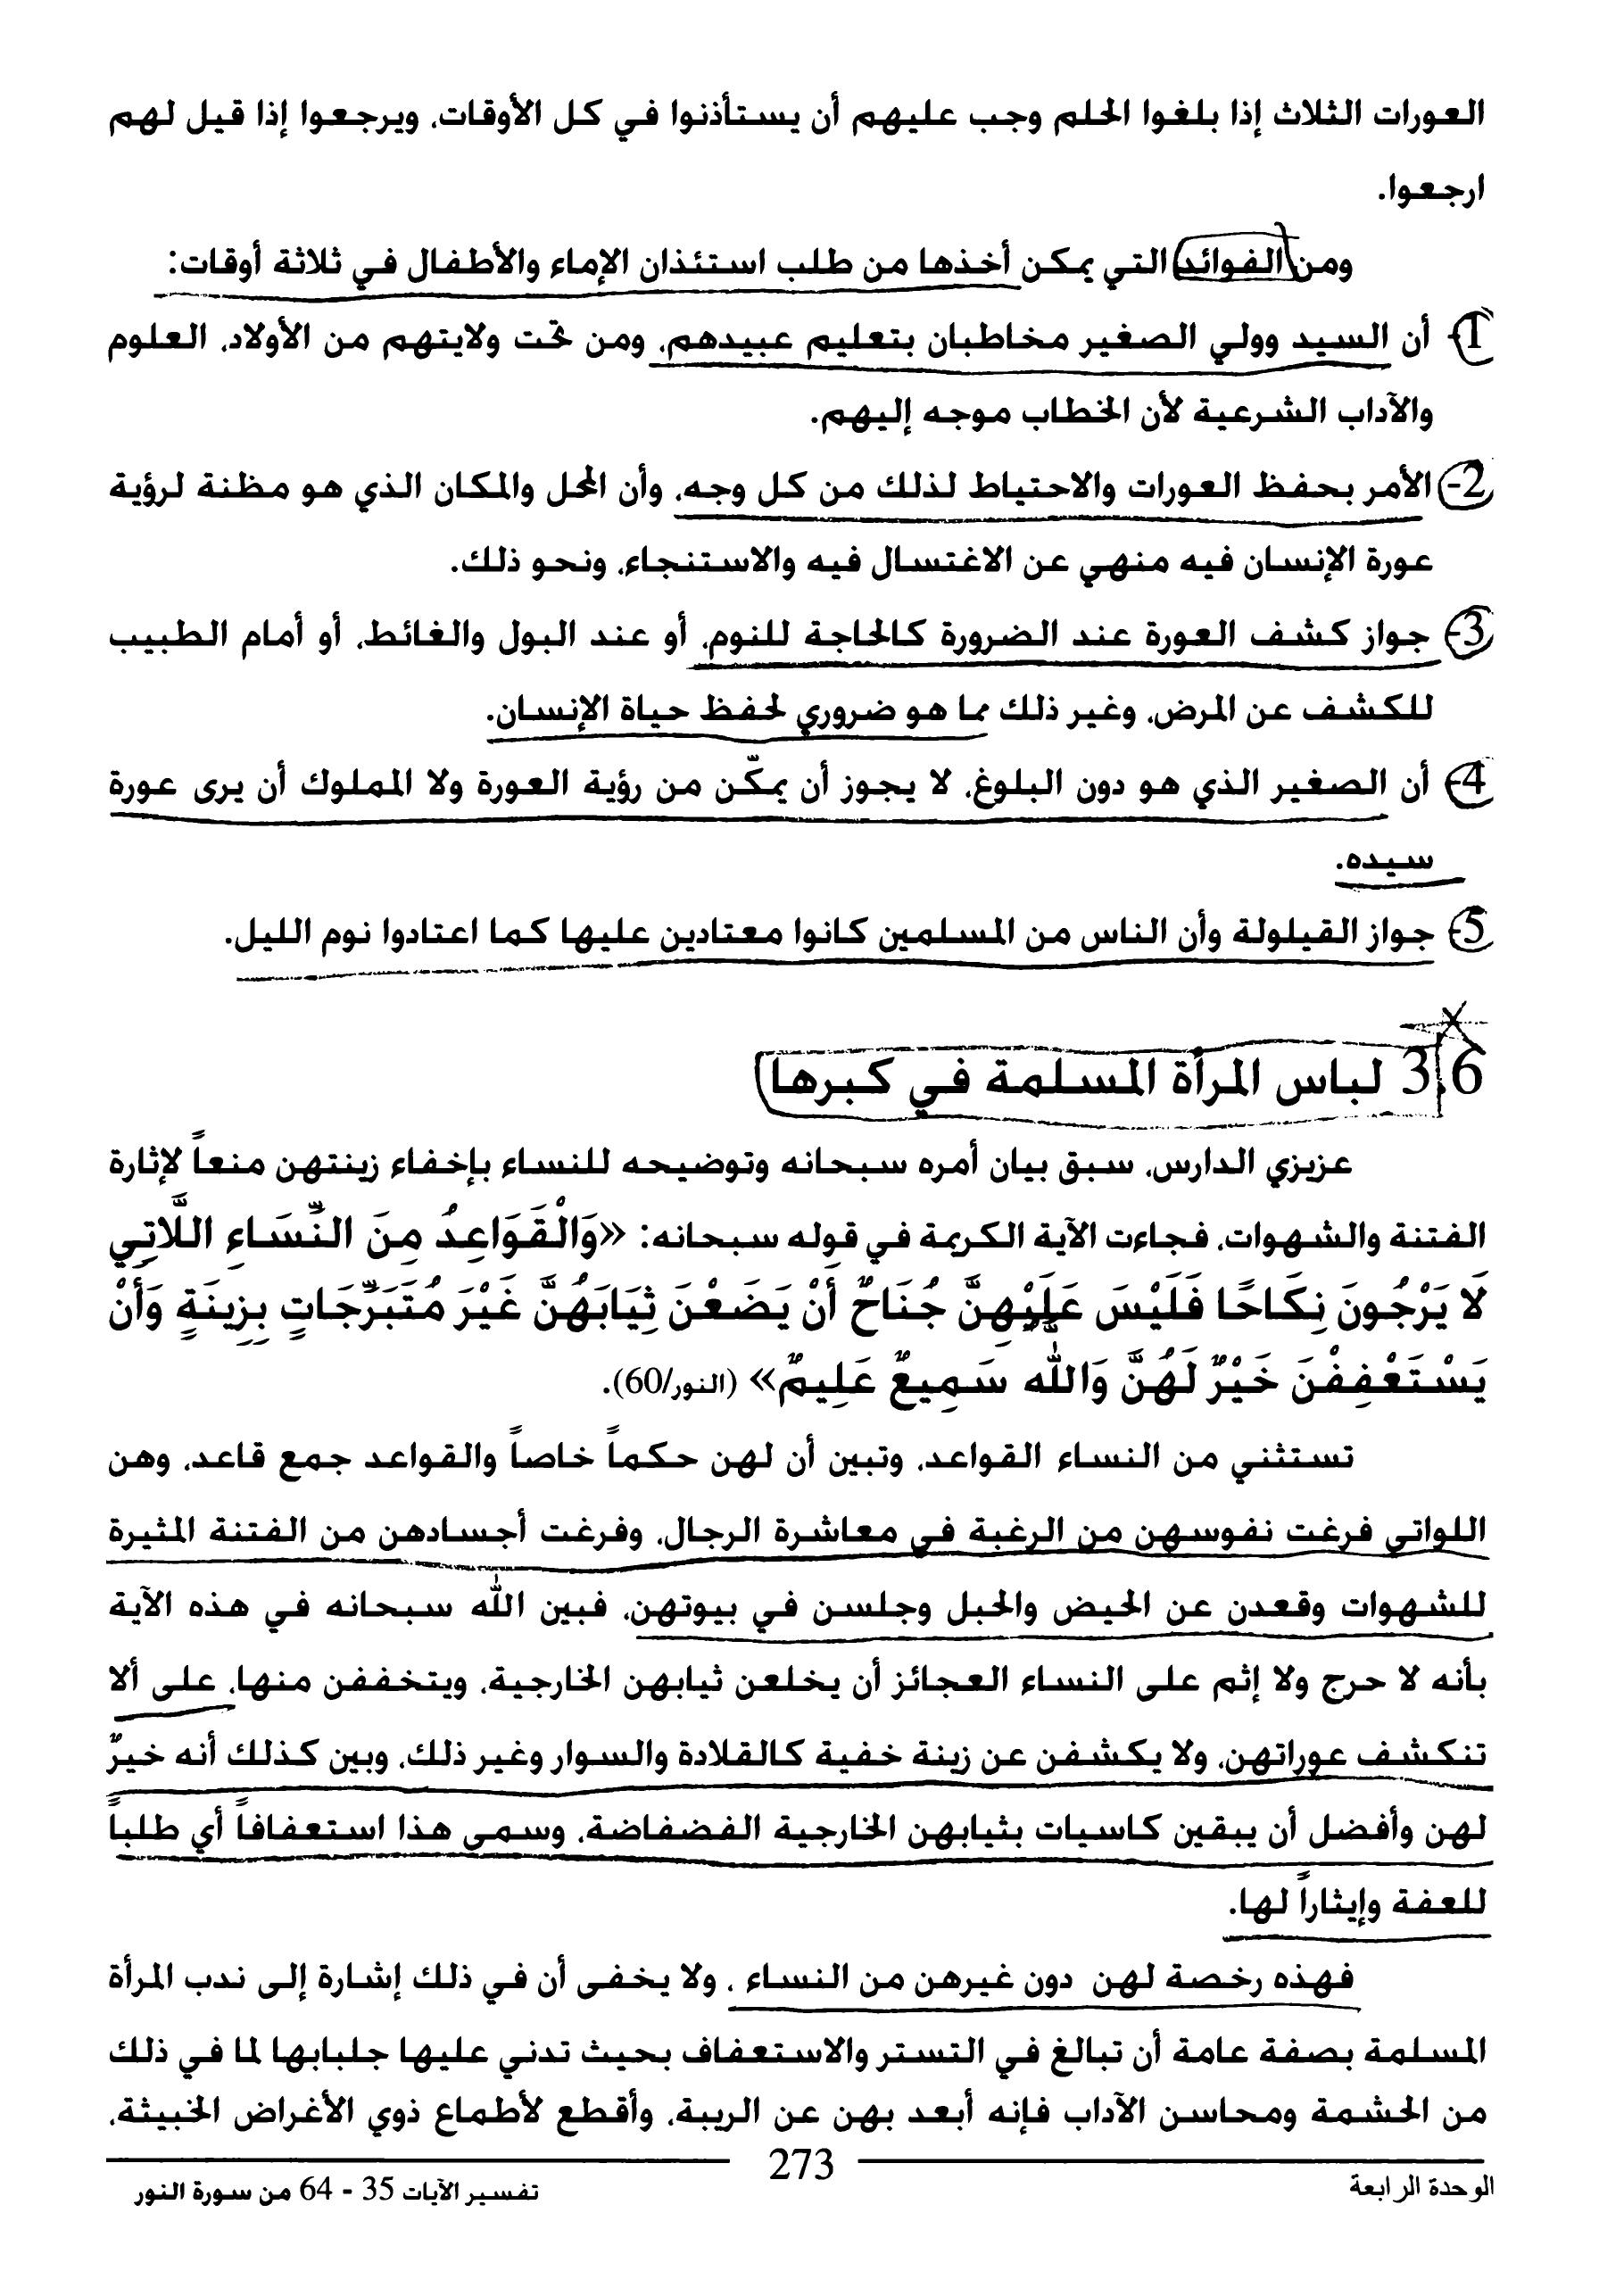 العورات الثلاث إذا بلغوا الحلم وجب عليهم أن يستأذنوا في كل الأوقات، ويرجعوا إذا قيل لهم
ارجعوا.
ومن الفوائد التي يمكن أخذها من طلب استئذان الإماء والأطفال في ثلاثة أوقات:
1- أن السيد وولي الصغير مخاطبان بتعليم عبيدهم، ومن تحت ولايتهم من الأولاد، العلوم
والآداب الشرعية لأن الخطاب موجه إليهم.
2- الأمر بحفظ العورات والاحتياط لذلك من كل وجه، وأن المحل والمكان الذي هو مظنة لرؤية
عورة الإنسان فيه منهي عن الاغتسال فيه والاستنجاء، ونحو ذلك.
3- جواز كشف العورة عند الضرورة كالحاجة للنوم، أو عند البول والغائط، أو أمام الطبيب
للكشف عن المرض، وغير ذلك مما هو ضروري لحفظ حياة الإنسان.
4- أن الصغير الذي هو دون البلوغ، لا يجوز أن يمكّن من رؤية العورة ولا المملوك أن يرى عورة
سيده.
5- جواز القيلولة وأن الناس من المسلمين كانوا معتادين عليها كما اعتادوا نوم الليل.
3.6 لباس المرأة المسلمة في كبرها
عزيزي الدارس، سبق بيان أمره سبحانه وتوضيحه للنساء بإخفاء زينتهن منعاً لإثارة
الفتنة والشهوات، فجاءت الآية الكريمة في قوله سبحانه: «وَالْقَوَاعِدُ مِنَ النِّسَاءِ اللَّاتِي
لَا يَرْجُونَ نِكَاحًا فَلَيْسَ عَلَيْهِنَّ جُنَاحٌ أَنْ يَضَعْنَ ثِيَابَهُنَّ غَيْرَ مُتَبَرِّجَاتٍ بِزِينَةٍ وَأَنْ
يَسْتَعْفِفْنَ خَيْرٌ لَهُنَّ وَاللَّه سَمِيعٌ عَلِيمٌ» (النور/60).
تستثني من النساء القواعد، وتبين أن لهن حكماً خاصاً والقواعد جمع قاعد، وهن
اللواتي فرغت نفوسهن من الرغبة في معاشرة الرجال، وفرغت أجسادهن من الفتنة المثيرة
للشهوات وقعدن عن الحيض والحبل وجلسن في بيوتهن، فبين الله سبحانه في هذه الآية
بأنه لا حرج ولا إثم على النساء العجائز أن يخلعن ثيابهن الخارجية، ويتخففن منها، على ألا
تنكشف عوراتهن، ولا يكشفن عن زينة خفية كالقلادة والسوار وغير ذلك، وبين كذلك أنه خيرٌ
لهن وأفضل أن يبقين كاسيات بثيابهن الخارجية الفضفاضة، وسمى هذا استعفافاً أي طلباً
للعفة وإيثاراً لها.
فهذه رخصة لهن دون غيرهن من النساء ، ولا يخفى أن في ذلك إشارة إلى ندب المرأة
المسلمة بصفة عامة أن تبالغ في التستر والاستعفاف بحيث تدني عليها جلبابها لما في ذلك
من الحشمة ومحاسن الآداب فإنه أبعد بهن عن الريبة، وأقطع لأطماع ذوي الأغراض الخبيثة،
273
الوحدة الرابعة
تفسير الآيات 35 - 64 من سورة النور